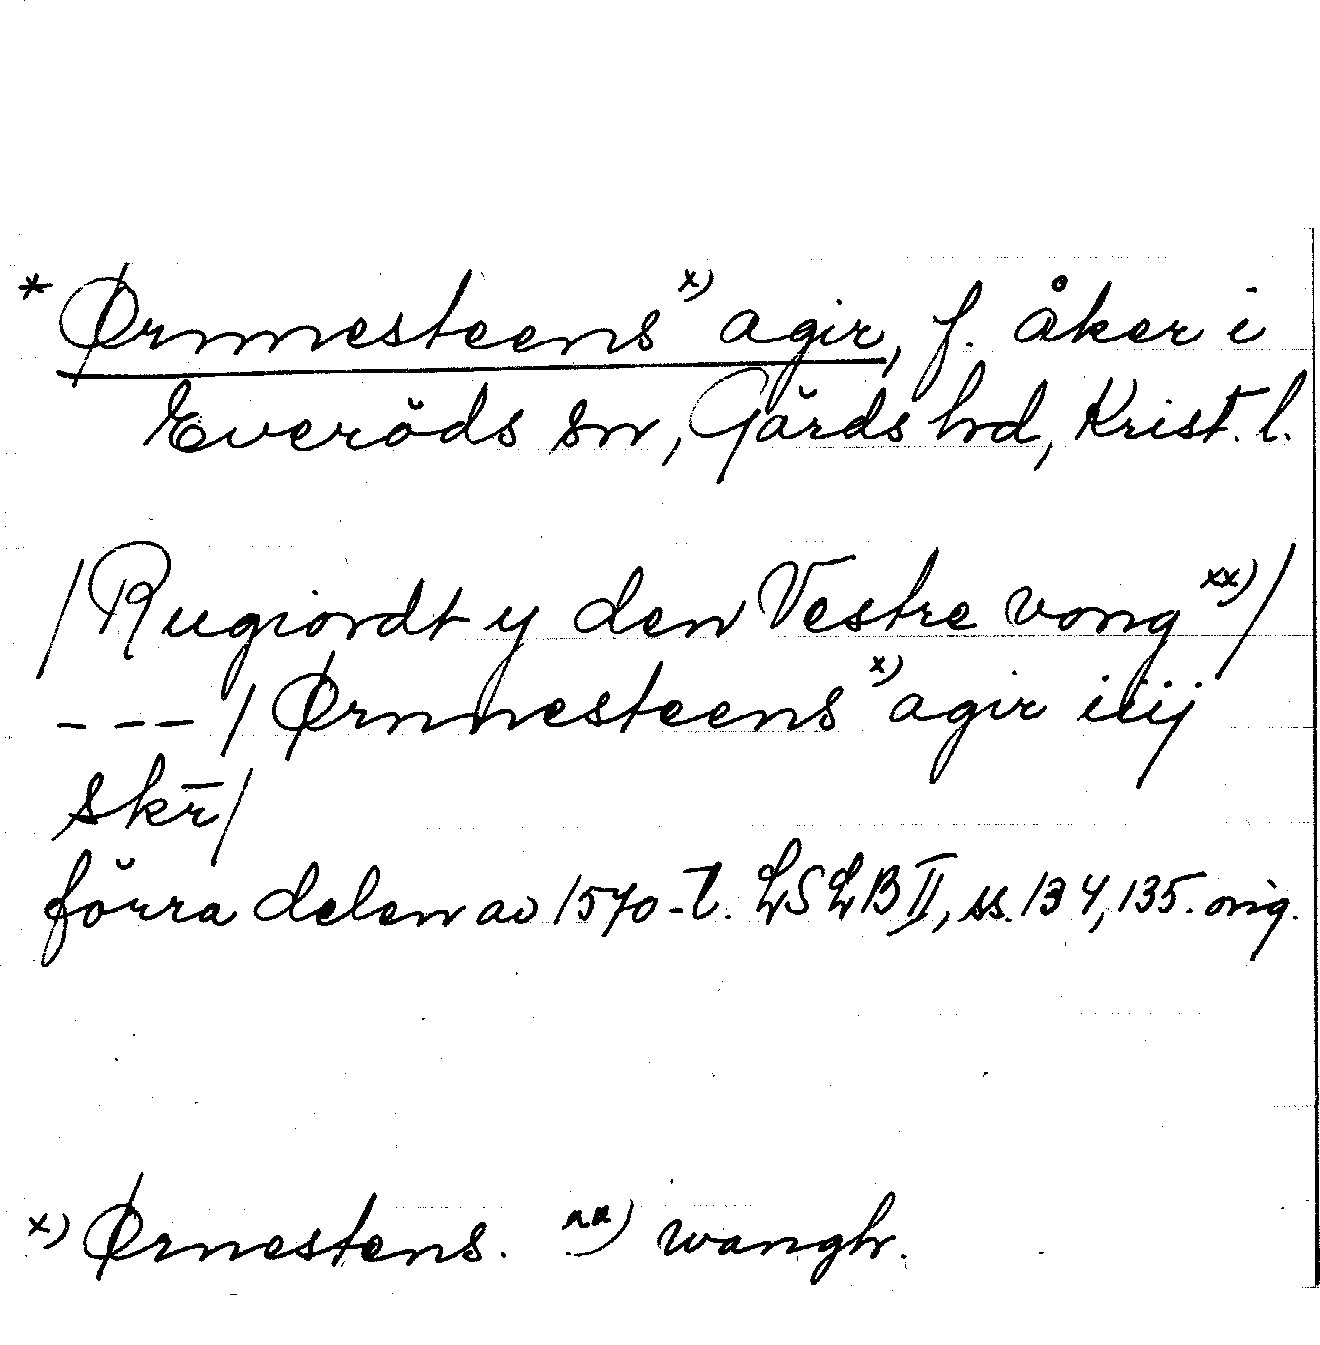 * Ørnnesteens x) agir, f. åker i
Everöds sn, Gärds hd, Krist. l.
/Rugiordt y den Vestre vong xx)/
--- / Ørnnesteens x) agir iiij
skr̄/
förra delen av 1570-t. LSLB II, ss. 134, 135. orig.
x) Ørnestens. xx) wangh.